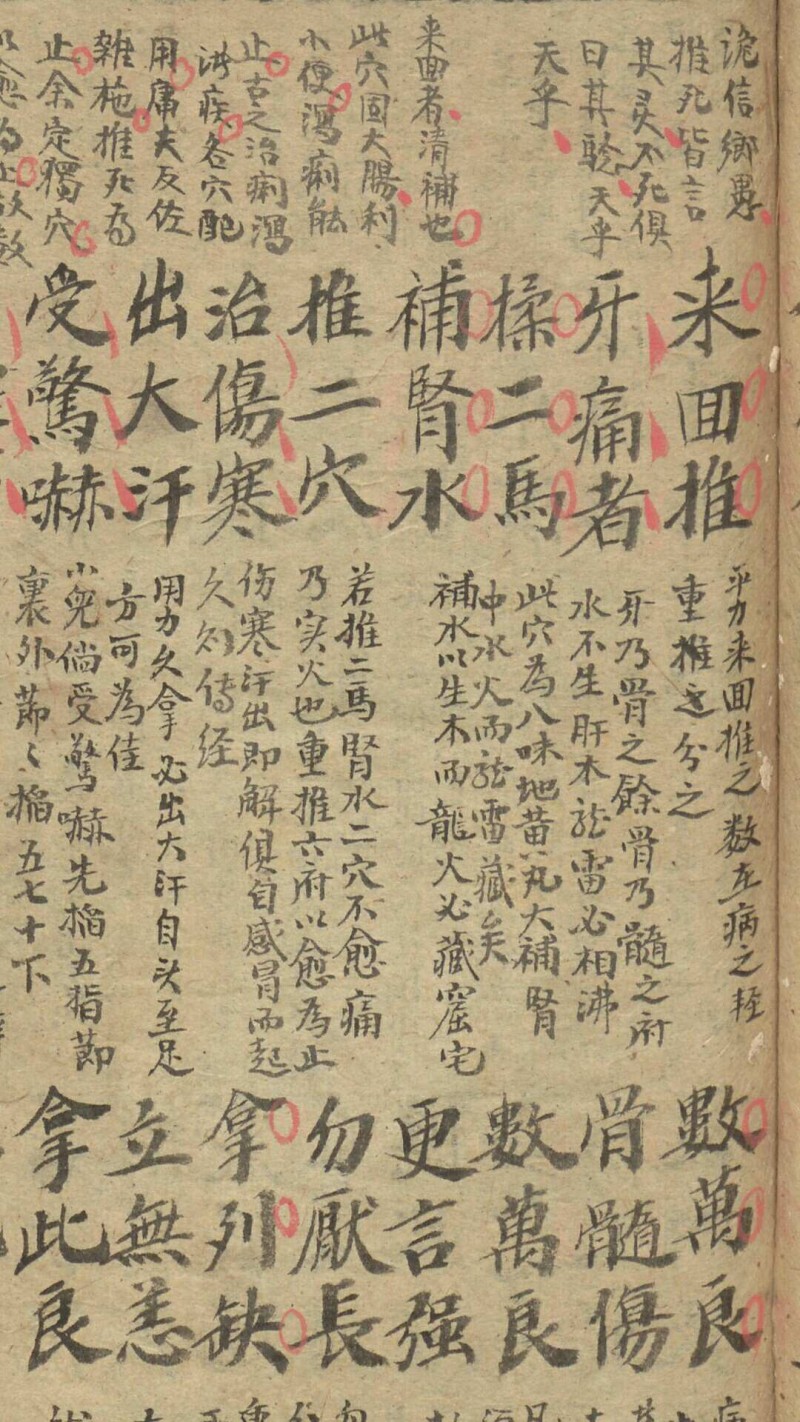 詭信鄉愚
推死皆言
其灵不死俱
曰其驗天乎
天乎
来回者清補也
此穴固大腸利
小便瀉痢能
止古之治痢瀉
疾各穴配
用庸夫反佐
雜施推死為
止余定獨穴
以愈為止故数
来回推
牙痛者
揉二馬
補腎水
推二穴
治傷寒
出大汗
受驚嚇
平力来回推之数在病之轻
重推之分之
牙乃骨之餘骨乃髓之府
水不生肝木龙雷必相沸
此穴為八味地黄丸大補腎
中水火而龙雷藏矣
補水以生木而龍火必藏窟宅
若推二馬腎水二穴不愈痛
乃实火也重推六府以愈為止
伤寒汗出即解俱自感冒而起
久则傅经
用力久拿必出大汗自头至足
方可為佳
小兒倘受驚嚇先掐五指節
裏外節〻掐五七十下
數萬良
骨髓傷
數萬良
更言强
勿厭長
拿列缺
立無恙
拿此良